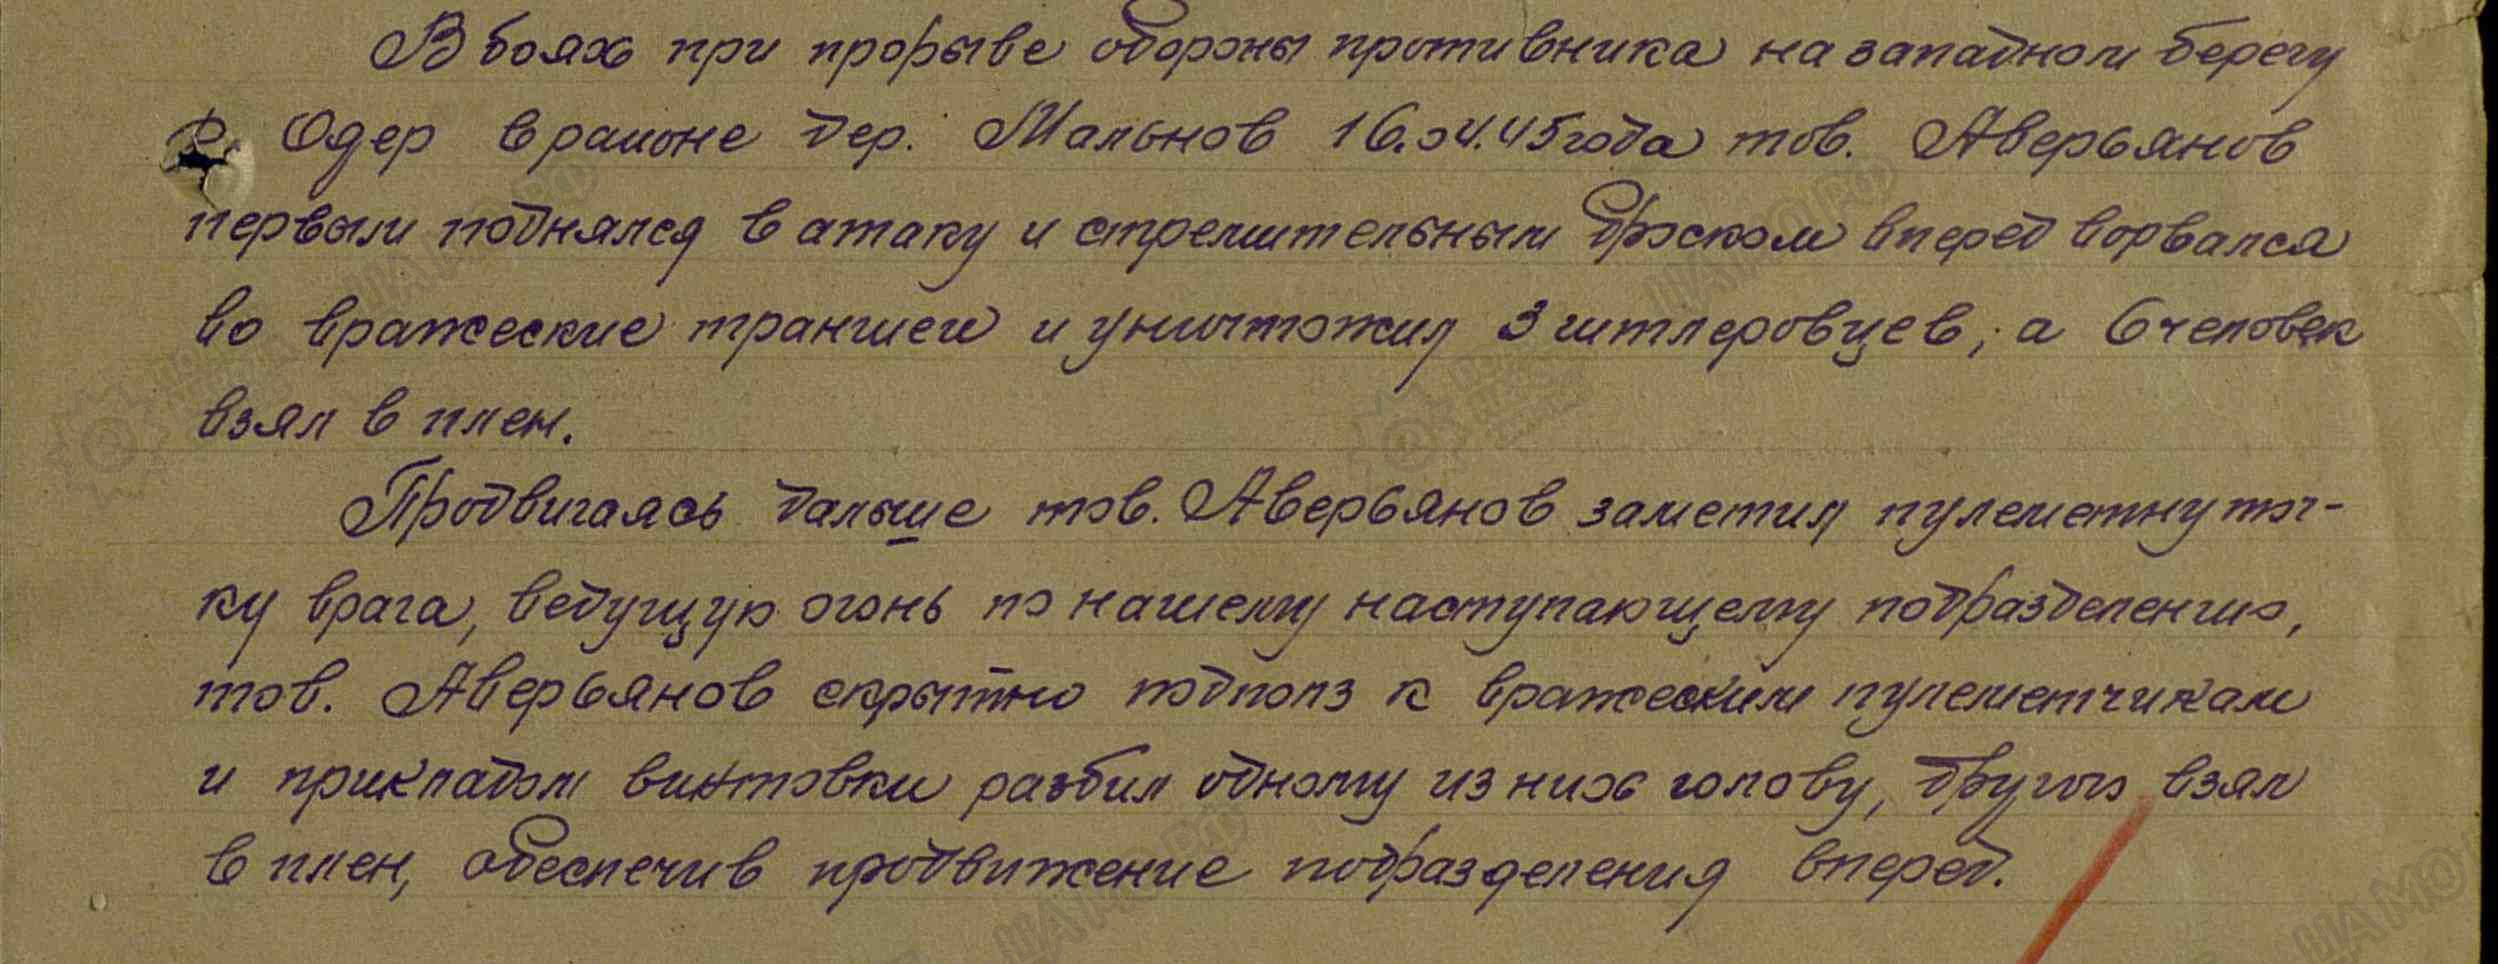 В боях при прорыве обороны противника на западном берегу
р. Одер в районе дер. Мальнов 16.04.45 года тов. Аверьянов
первым поднялся в атаку и стремительным броском вперед ворвался
во вражеские траншеи и уничтожил 3 гитлеровцев, а 6 человек
взял в плен.
Продвигаясь дальше тов. Аверьянов заметил пулеметну точ-
ку врага, ведущую огонь по нашему наступающему подразделению,
тов. Аверьянов скрытно подполз к вражеским пулеметчикам
и прикладом винтовки разбил одному из них голову, другого взял
в плен, обеспечив продвижение подразделения вперед.